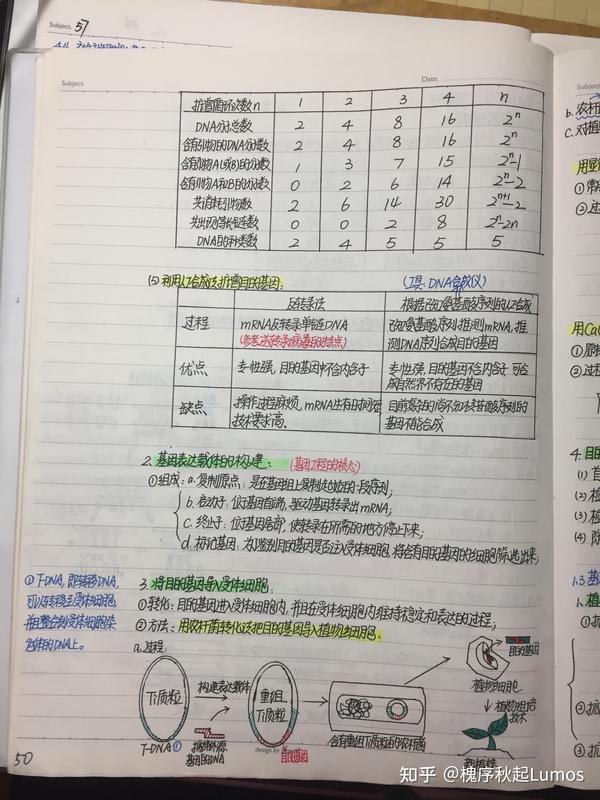 Subject. 57
Subject.
Date.
扩增循环次数n 1 2 3 4 n
DNA分子总数 2 4 8 16 2ⁿ
含有引物的DNA分子数 2 4 8 16 2ⁿ
含有引物A(或B)的分子数 1 3 7 15 2ⁿ-1
含有引物A和B的分子数 0 2 6 14 2ⁿ-2
共消耗引物数 2 6 14 30 2ⁿ⁺¹-2
共出现等长链数 0 0 2 8 2ⁿ-2n
DNA的种类数 2 4 5 5 5
(5) 利用人工合成法扩增目的基因: (工具: DNA合成仪)
反转录法 根据已知氨基酸序列人工合成
过程 mRNA反转录单链DNA 已知氨基酸序列推测mRNA, 推
(参考逆转录病毒的特点) 测DNA序列合成目的基因
优点 专一性强, 目的基因中不含内含子 专一性强, 目的基因不含内含子 可合
成自然界不存在的基因
缺点 操作过程麻烦, mRNA生存时间短 目前复杂的尚不知核苷酸序列的
技术要求高. 基因不能合成
2. 基因表达载体的构建: (基因工程的核心)
①组成: a. 复制原点: 是在基因组上复制起始的一段序列;
b. 启动子: 位于基因首端, 驱动基因转录出mRNA;
c. 终止子: 位于基因尾部, 使转录在所需的地方停止下来;
d. 标记基因: 为了鉴别目的基因是否注入受体细胞, 将含有目的基因的细胞筛选出来;
3. 将目的基因导入受体细胞:
①转化: 目的基因进入受体细胞内, 并且在受体细胞内维持稳定和表达的过程;
②方法: 用农杆菌转化法把目的基因导入植物细胞:
①T-DNA, 即转移DNA,
可以转移至受体细胞,
并且整合到受体细胞染
色体的DNA上。
a. 过程:
Ti质粒
构建表达载体
重组
Ti质粒
T-DNA①
携带外源
基因的DNA
目的基因
含有重组Ti质粒的农杆菌
目的基因
植物细胞
植物组培
技术
新植株
design by
50
b. 农杆
C. 对植
用显微
①常
②过
用Ca
①原
②过程
4. 目的
(1) 首
(2) 检
(3) 检
(4)
1.3 基
1. 植
①抗
②抗
③抗
知乎 @槐序秋起Lumos